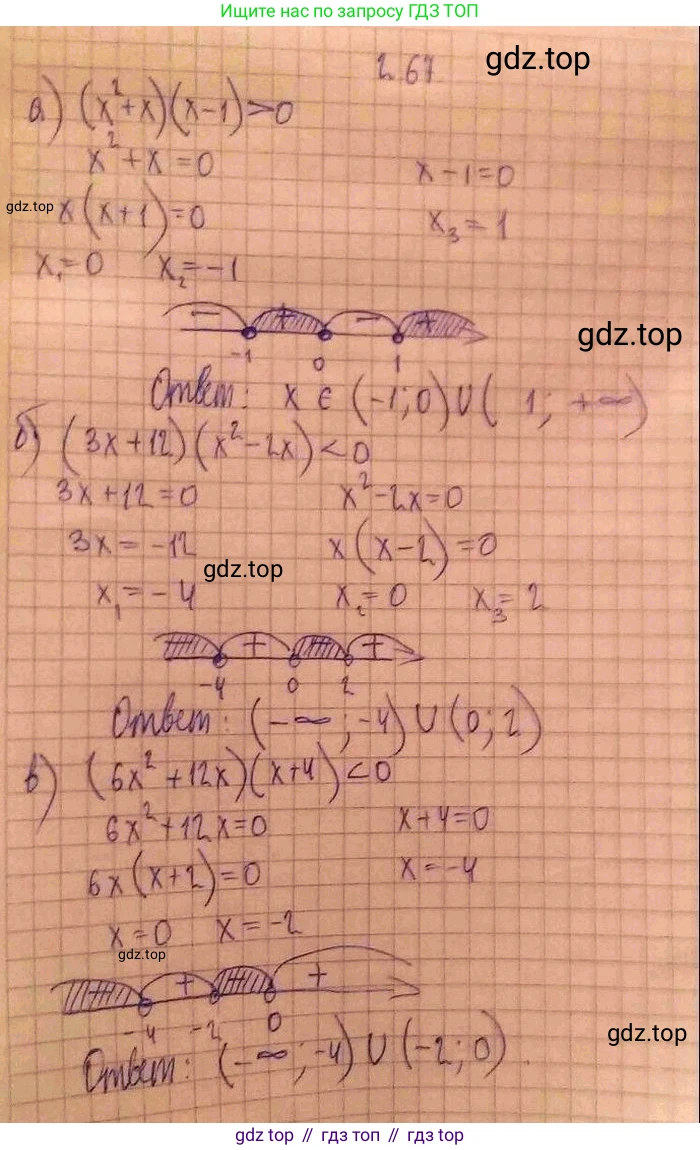 Ищите нас по запросу ГДЗ ТОП
2.67
gdz.top
а) (x²+x)(x-1)>0
x²+x=0
x-1=0
gdz.top
x(x+1)=0
x₃=1
x₁=0 x₂=-1
- + - +
gdz.top
-1 0 1
Ответ: x ∈ (-1;0)∪( 1; +∞)
б) (3x+12)(x²-2x)<0
3x+12=0 x²-2x=0
3x=-12 x(x-2)=0
gdz.top
x₁=-4 x₂=0 x₃=2
+ +
-4 0 2
Ответ: (-∞;-4)∪(0;2)
в) (6x²+12x)(x+4)<0
6x²+12x=0 x+4=0
6x(x+2)=0 x=-4
x=0 x=-2
gdz.top
+ +
-4 -2 0
gdz.top
Ответ: (-∞;-4)∪(-2;0).
gdz top // гдз топ // gdz.top